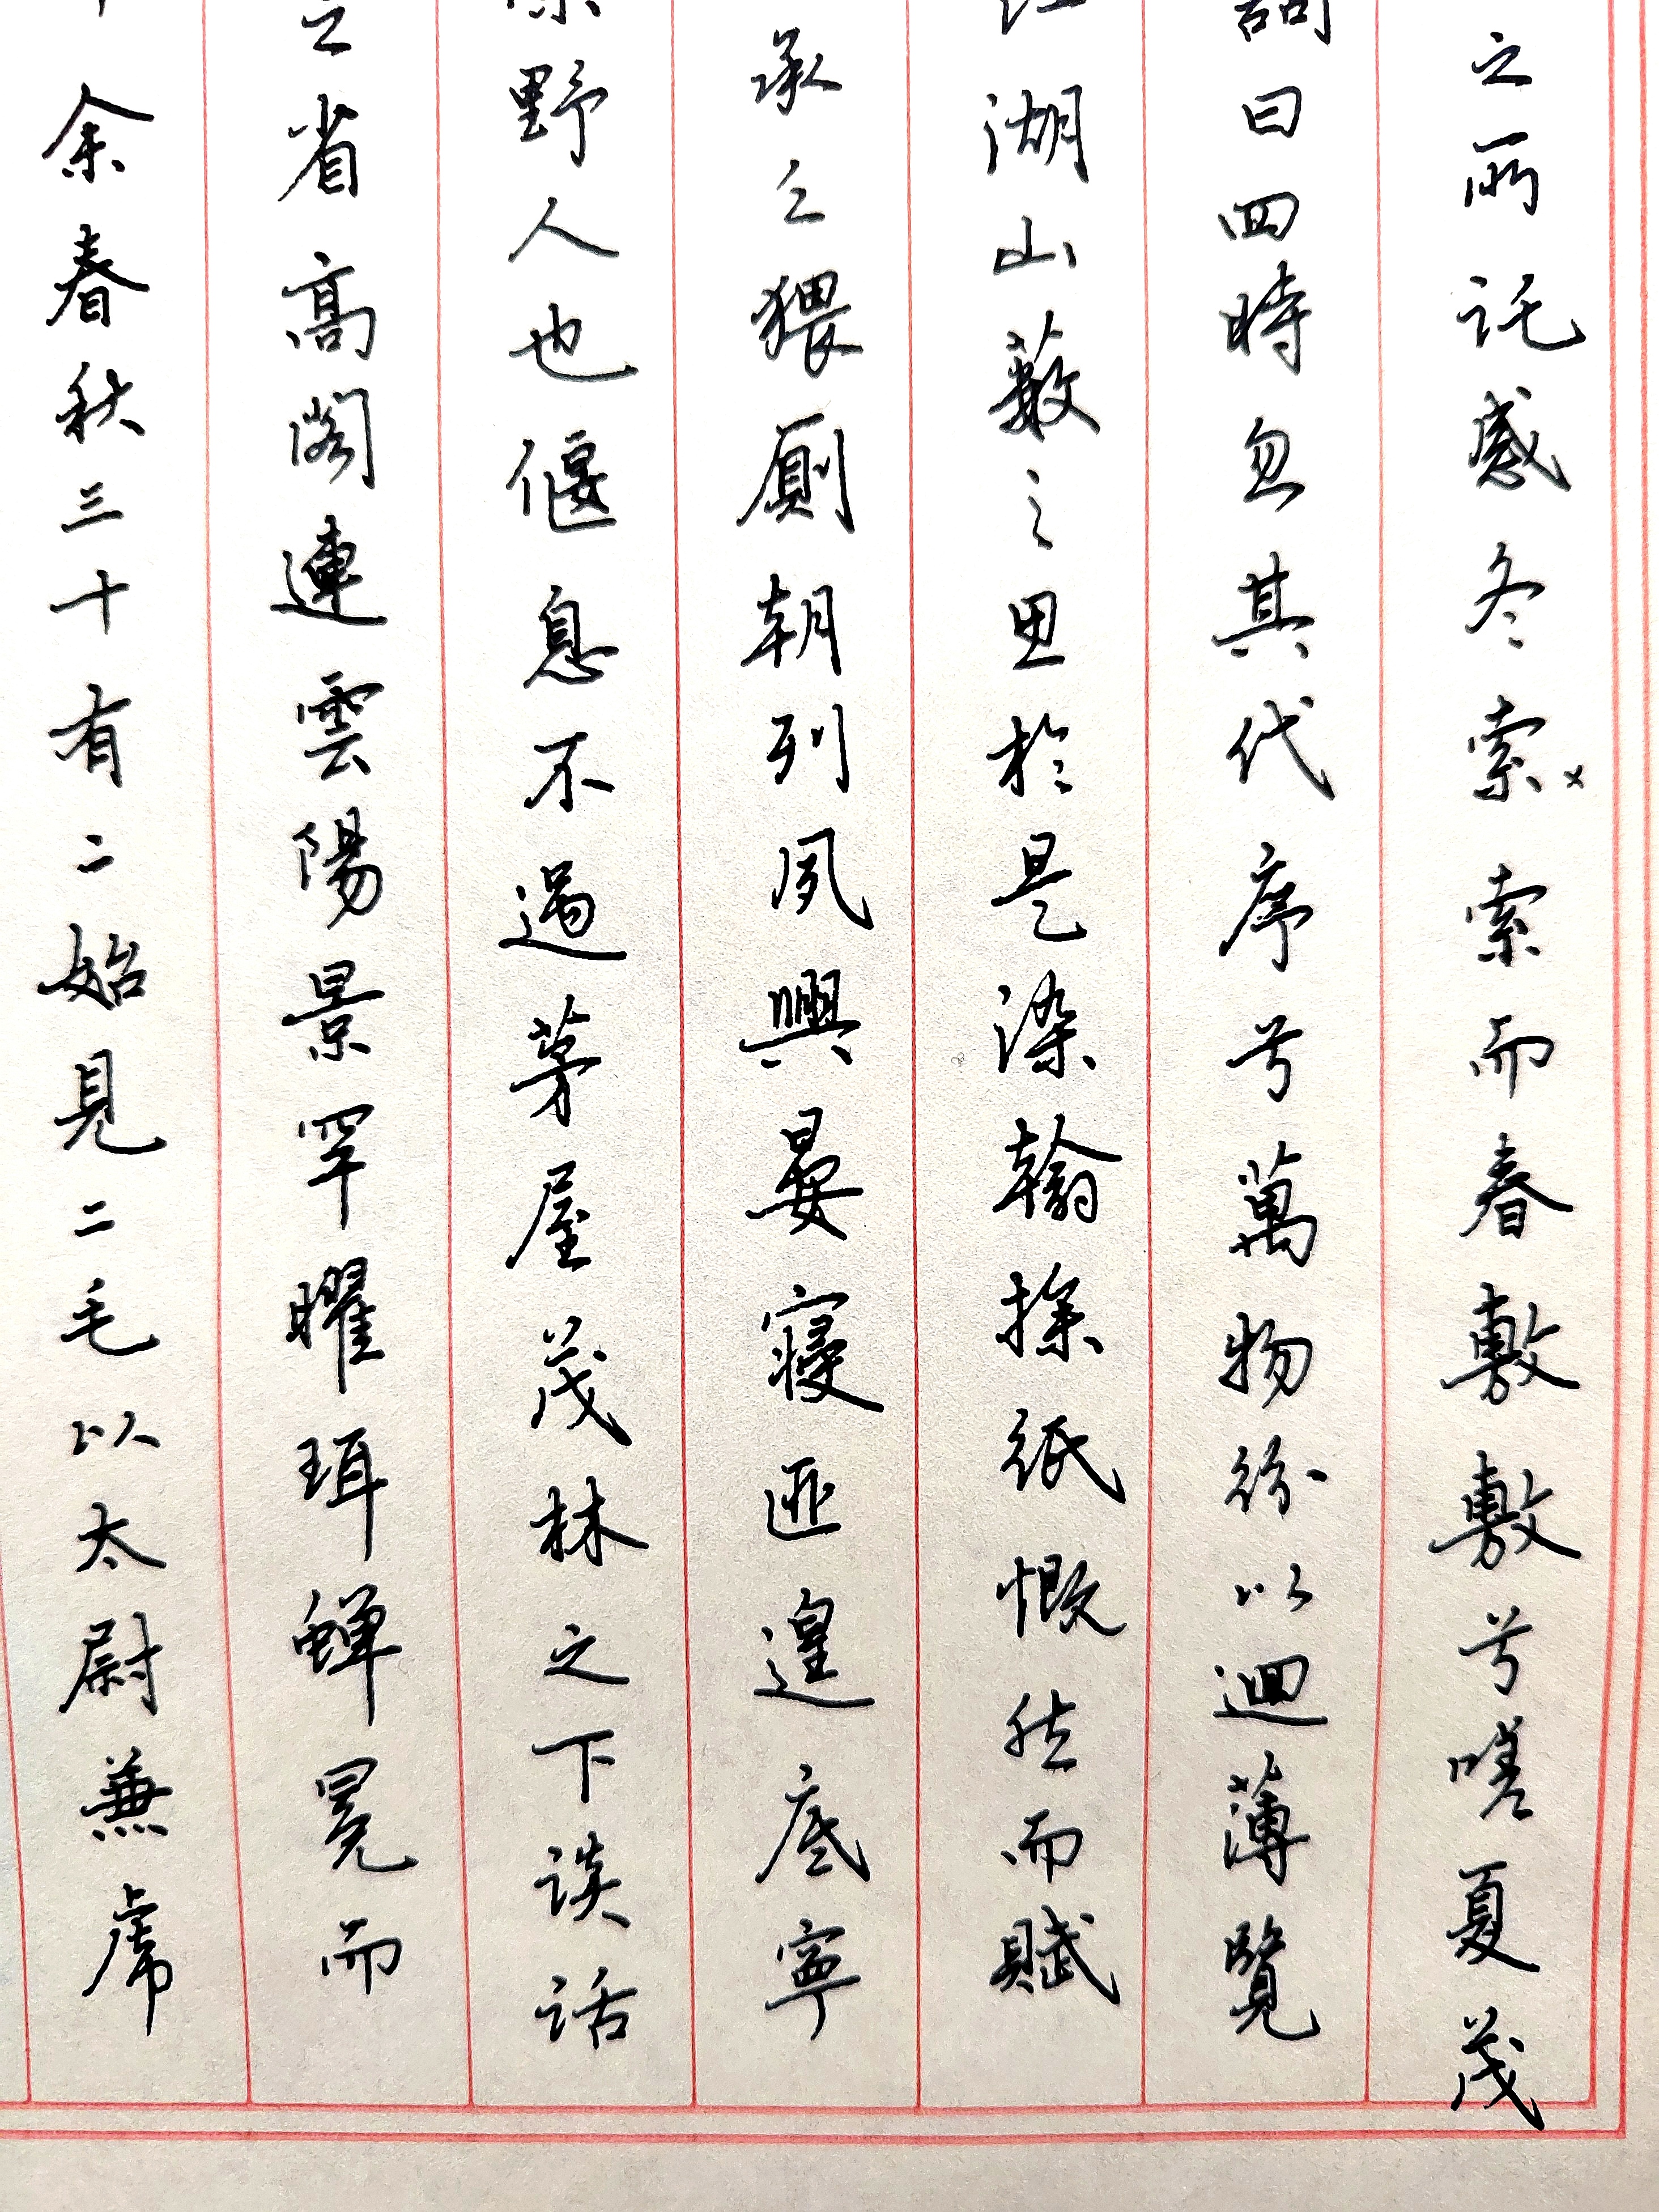 余春秋三十有二始見二毛以太尉兼虎
之省高閣連雲陽景罕曜珥蟬冕而
野人也偃息不過茅屋茂林之下談話
承乏猥廁朝列夙興晏寢匪遑底寧
湖山藪之思於是染翰操紙慨然而賦
詞曰四時忽其代序兮萬物紛以迴薄覽
之所託感冬索索而春敷敷兮嗟夏茂